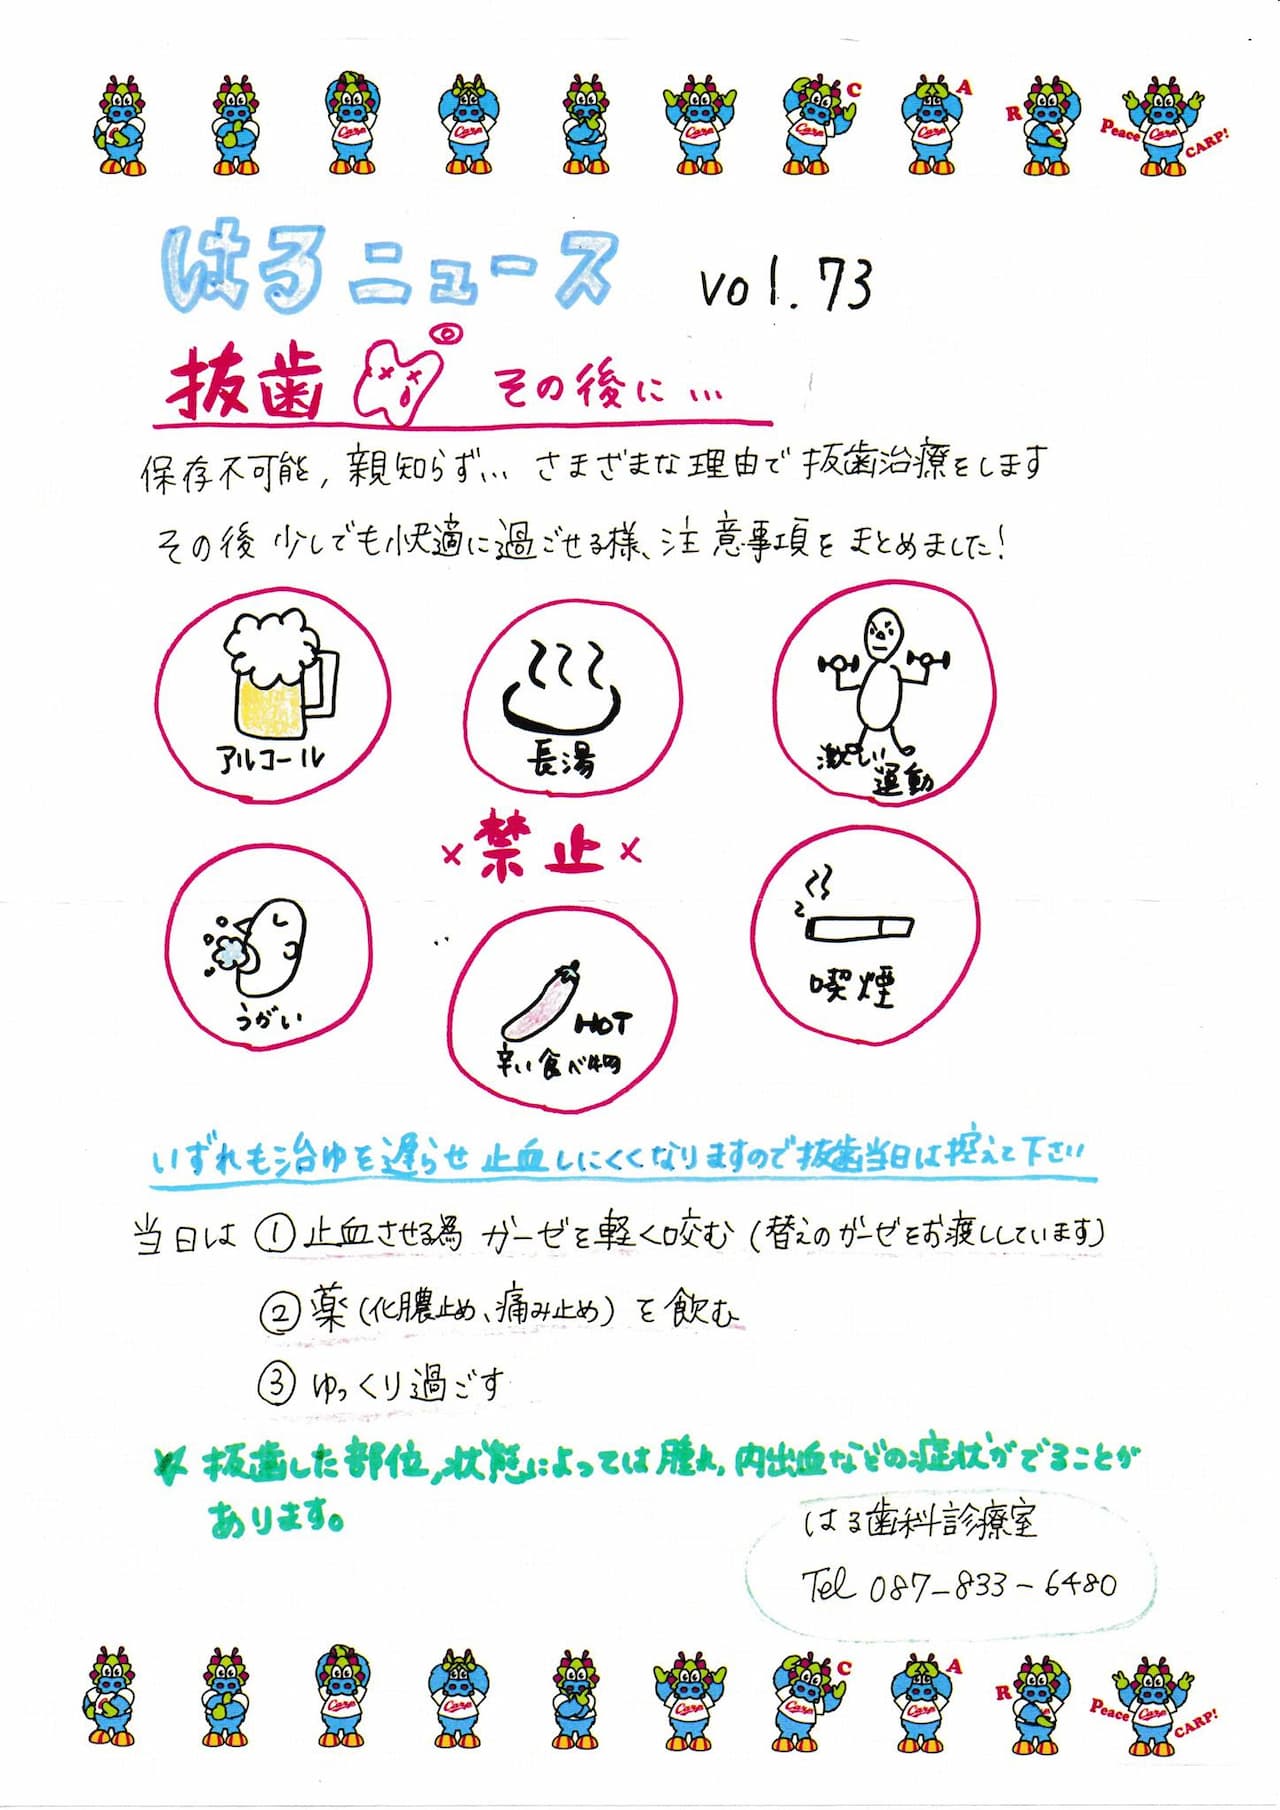 Carp Carp Carp Carp C Carp A R Peace Carp CARP!
はるニュース vol.73
抜歯 その後に…
保存不可能,親知らず… さまざまな理由で抜歯治療をします
その後 少しでも快適に過ごせる様、注意事項をまとめました!
アルコール
長湯
激しい
運動
×禁止×
うがい
HOT
辛い食べ物
喫煙
いずれも治ゆを遅らせ 止血しにくくなりますので抜歯当日は控えて下さい
当日は ①止血させる為 ガーゼを軽く咬む(替えのガーゼをお渡ししています)
②薬(化膿止め、痛み止め)を飲む
③ゆっくり過ごす
※抜歯した部位,状態によっては腫れ,内出血などの症状がでることが
あります。
はる歯科診療室
Tel 087-833-6480
Carp Carp Carp Carp C Carp A R Peace Carp CARP!